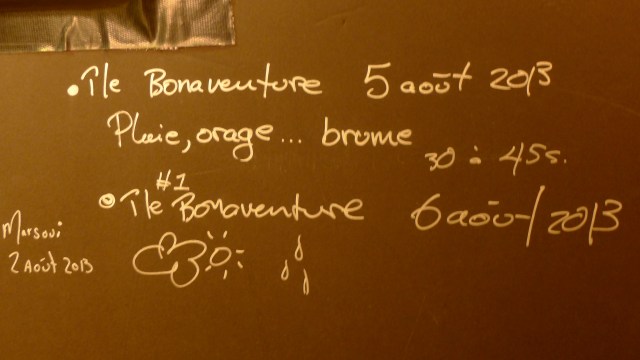 • Île Bonaventure 5 août 2013
Pluie, orage... brume
30 à 45s.
#1
Île Bonaventure 6 août 2013
Marsoui
2 Août 2013